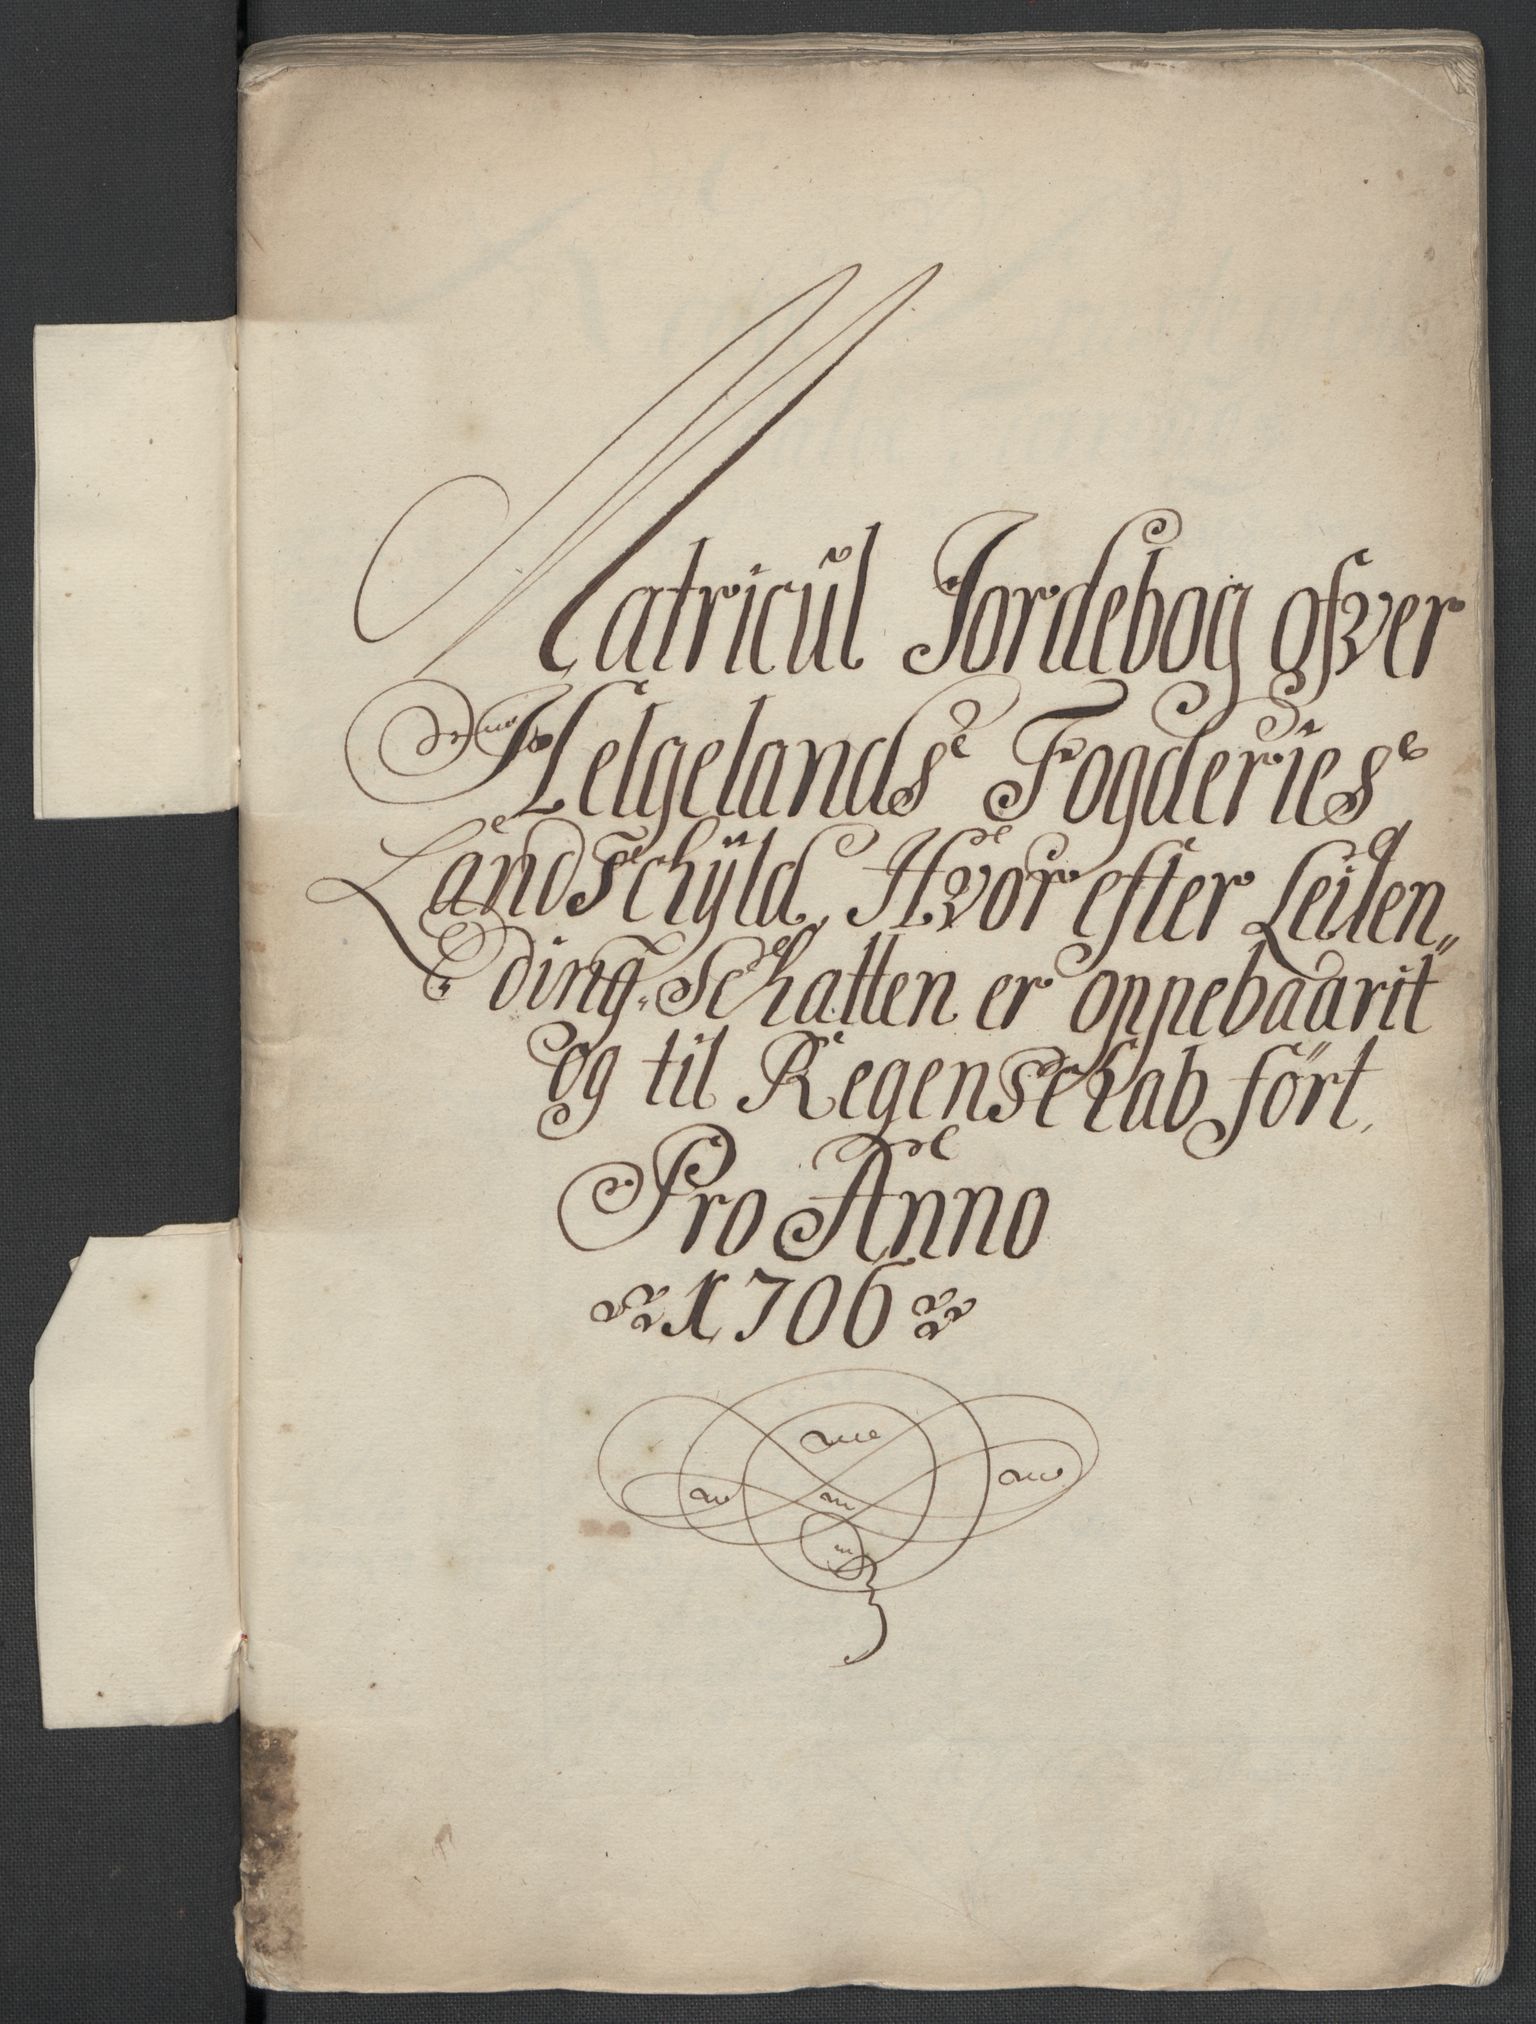 Matricul Jordebog ofver
Helgelands Fogderies
Landschÿld, Hvor efter Leilen„
ding-Schatten er oppebaarit
og til Regenschab fört,
Pro Anno
1706